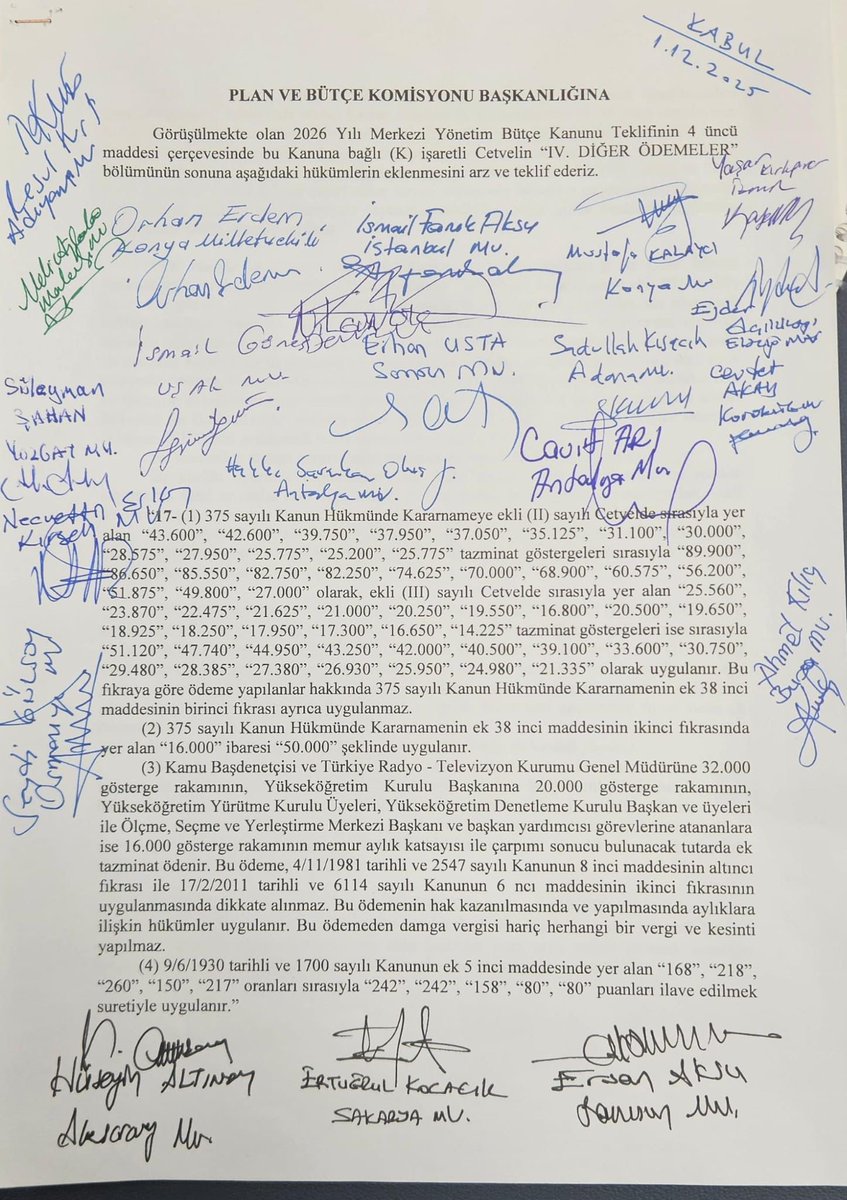 KABUL
1.12.2025
PLAN VE BÜTÇE KOMİSYONU BAŞKANLIĞINA
Görüşülmekte olan 2026 Yılı Merkezi Yönetim Bütçe Kanunu Teklifinin 4 üncü
maddesi çerçevesinde bu Kanuna bağlı (K) işaretli Cetvelin “IV. DİĞER ÖDEMELER”
bölümünün sonuna aşağıdaki hükümlerin eklenmesini arz ve teklif ederiz.
Adıyaman
Orhan Erdem
Konya Milletvekili
Orhan Erdem
İsmail Faruk Aksu
İstanbul Mv.
Mustafa KALAYCI
Konya Mv
Yaşar Kırkpınar
İzmir
İsmail Güneş
UŞAK MV.
Erhan USTA
Samsun Mv.
Sadullah Kısacık
Adana Mv.
Ejder
Açıkkapı
Elazığ Mv
Cevdet
AKAY
Karabük
Süleyman
ŞAHAN
YOZGAT MV.
Hakkı Saruhan Oluç
Antalya Mv.
Cavit ARI
Antalya Mv
Necmettin Erkan
Kırşehir Mv
“17- (1) 375 sayılı Kanun Hükmünde Kararnameye ekli (II) sayılı Cetvelde sırasıyla yer
alan “43.600”, “42.600”, “39.750”, “37.950”, “37.050”, “35.125”, “31.100”, “30.000”,
“28.575”, “27.950”, “25.775”, “25.200”, “25.775” tazminat göstergeleri sırasıyla “89.900”,
“86.650”, “85.550”, “82.750”, “82.250”, “74.625”, “70.000”, “68.900”, “60.575”, “56.200”,
“51.875”, “49.800”, “27.000” olarak, ekli (III) sayılı Cetvelde sırasıyla yer alan “25.560”,
“23.870”, “22.475”, “21.625”, “21.000”, “20.250”, “19.550”, “16.800”, “20.500”, “19.650”,
“18.925”, “18.250”, “17.950”, “17.300”, “16.650”, “14.225” tazminat göstergeleri ise sırasıyla
“51.120”, “47.740”, “44.950”, “43.250”, “42.000”, “40.500”, “39.100”, “33.600”, “30.750”,
“29.480”, “28.385”, “27.380”, “26.930”, “25.950”, “24.980”, “21.335” olarak uygulanır. Bu
fıkraya göre ödeme yapılanlar hakkında 375 sayılı Kanun Hükmünde Kararnamenin ek 38 inci
maddesinin birinci fıkrası ayrıca uygulanmaz.
(2) 375 sayılı Kanun Hükmünde Kararnamenin ek 38 inci maddesinin ikinci fıkrasında
yer alan “16.000” ibaresi “50.000” şeklinde uygulanır.
(3) Kamu Başdenetçisi ve Türkiye Radyo - Televizyon Kurumu Genel Müdürüne 32.000
gösterge rakamının, Yükseköğretim Kurulu Başkanına 20.000 gösterge rakamının,
Yükseköğretim Yürütme Kurulu Üyeleri, Yükseköğretim Denetleme Kurulu Başkan ve üyeleri
ile Ölçme, Seçme ve Yerleştirme Merkezi Başkanı ve başkan yardımcısı görevlerine atananlara
ise 16.000 gösterge rakamının memur aylık katsayısı ile çarpımı sonucu bulunacak tutarda ek
tazminat ödenir. Bu ödeme, 4/11/1981 tarihli ve 2547 sayılı Kanunun 8 inci maddesinin altıncı
fıkrası ile 17/2/2011 tarihli ve 6114 sayılı Kanunun 6 ncı maddesinin ikinci fıkrasının
uygulanmasında dikkate alınmaz. Bu ödemenin hak kazanılmasında ve yapılmasında aylıklara
ilişkin hükümler uygulanır. Bu ödemeden damga vergisi hariç herhangi bir vergi ve kesinti
yapılmaz.
(4) 9/6/1930 tarihli ve 1700 sayılı Kanunun ek 5 inci maddesinde yer alan “168”, “218”,
“260”, “150”, “217” oranları sırasıyla “242”, “242”, “158”, “80”, “80” puanları ilave edilmek
suretiyle uygulanır.”
Ahmet Kılıç
Bursa Mv.
Hüseyin ALTINSOY
Aksaray Mv.
ERTUĞRUL KOCACIK
SAKARYA MV.
Ersan AKSU
Samsun Mv.